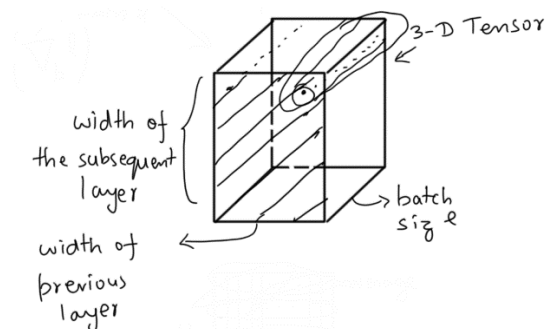 3-D Tensor
width of
the subsequent
layer
batch
size
width of
previous
layer